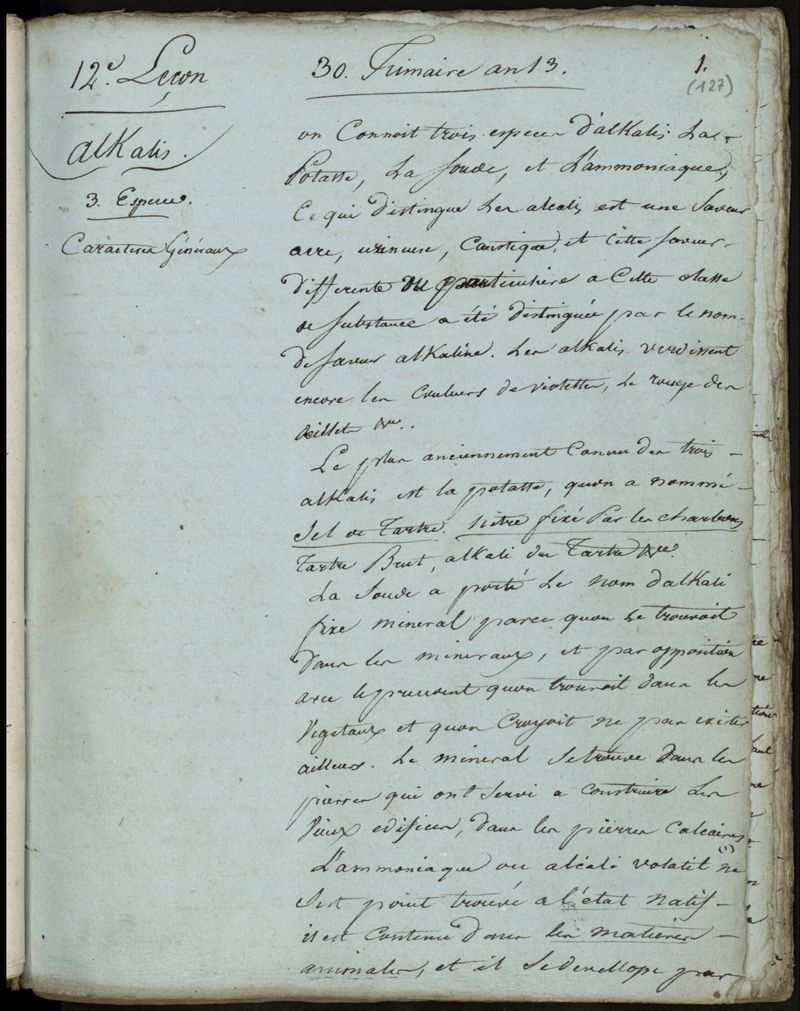 12e. Leçon
30. Frimaire an 13.
1.
(127)
alKalis.
3. Especes.
Caracteres Généraux
on Connoit trois especes d'alKalis. La
Potasse, La Soude, et L'ammoniaque,
Ce qui distingue Les alcalis est une Saveur
acre, urineuse, Caustique, et Cette Saveur
differente ou particuliere a Cette classe
de substance a été distinguée par le nom
de Saveur alKaline. Les alKalis verdissent
encore les Couleurs de violettes, le rouge des
œillets &c.
Le plus anciennement Connu des trois
alKalis est la potasse, quon a nommé
Sel de Tartre. Nitre fixé Par les charbons
Tartre Brut, alkali du Tartre &c.
La Soude a porté Le nom dalKali
fixe mineral parce quon Le trouvoit
dans les mineraux, et par opposition
avec le quon trouvoit dans les
Vegetaux et quon Croyoit ne pas exister
ailleurs. Le mineral Se trouve dans les
pierres qui ont Servi a Construire Les
Vieux edifices, dans les pierres Calcaires
(1)
L'ammoniaque ou alcali volatil ne
Sest point trouvé a l'état natif
il est Contenu dans les matieres
animales, et il Se devellope par